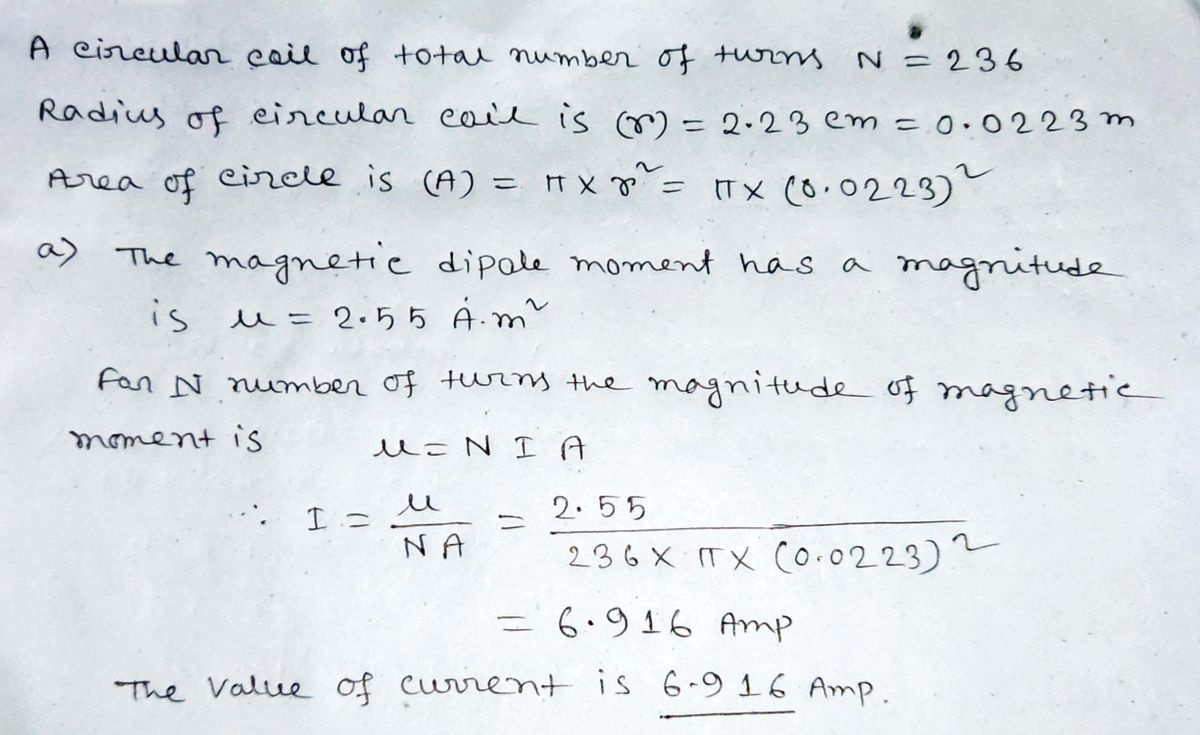 A circular coil of total number of turns N = 236
Radius of circular coil is (r) = 2.23 cm = 0.0223 m
Area of circle is (A) = π × r² = π × (0.0223)²
a) The magnetic dipole moment has a magnitude
is μ = 2.55 A.m²
For N number of turns the magnitude of magnetic
moment is μ = N I A
∴ I = μ / N A = 2.55 / 236 × π × (0.0223)²
= 6.916 Amp
The value of current is 6.916 Amp.